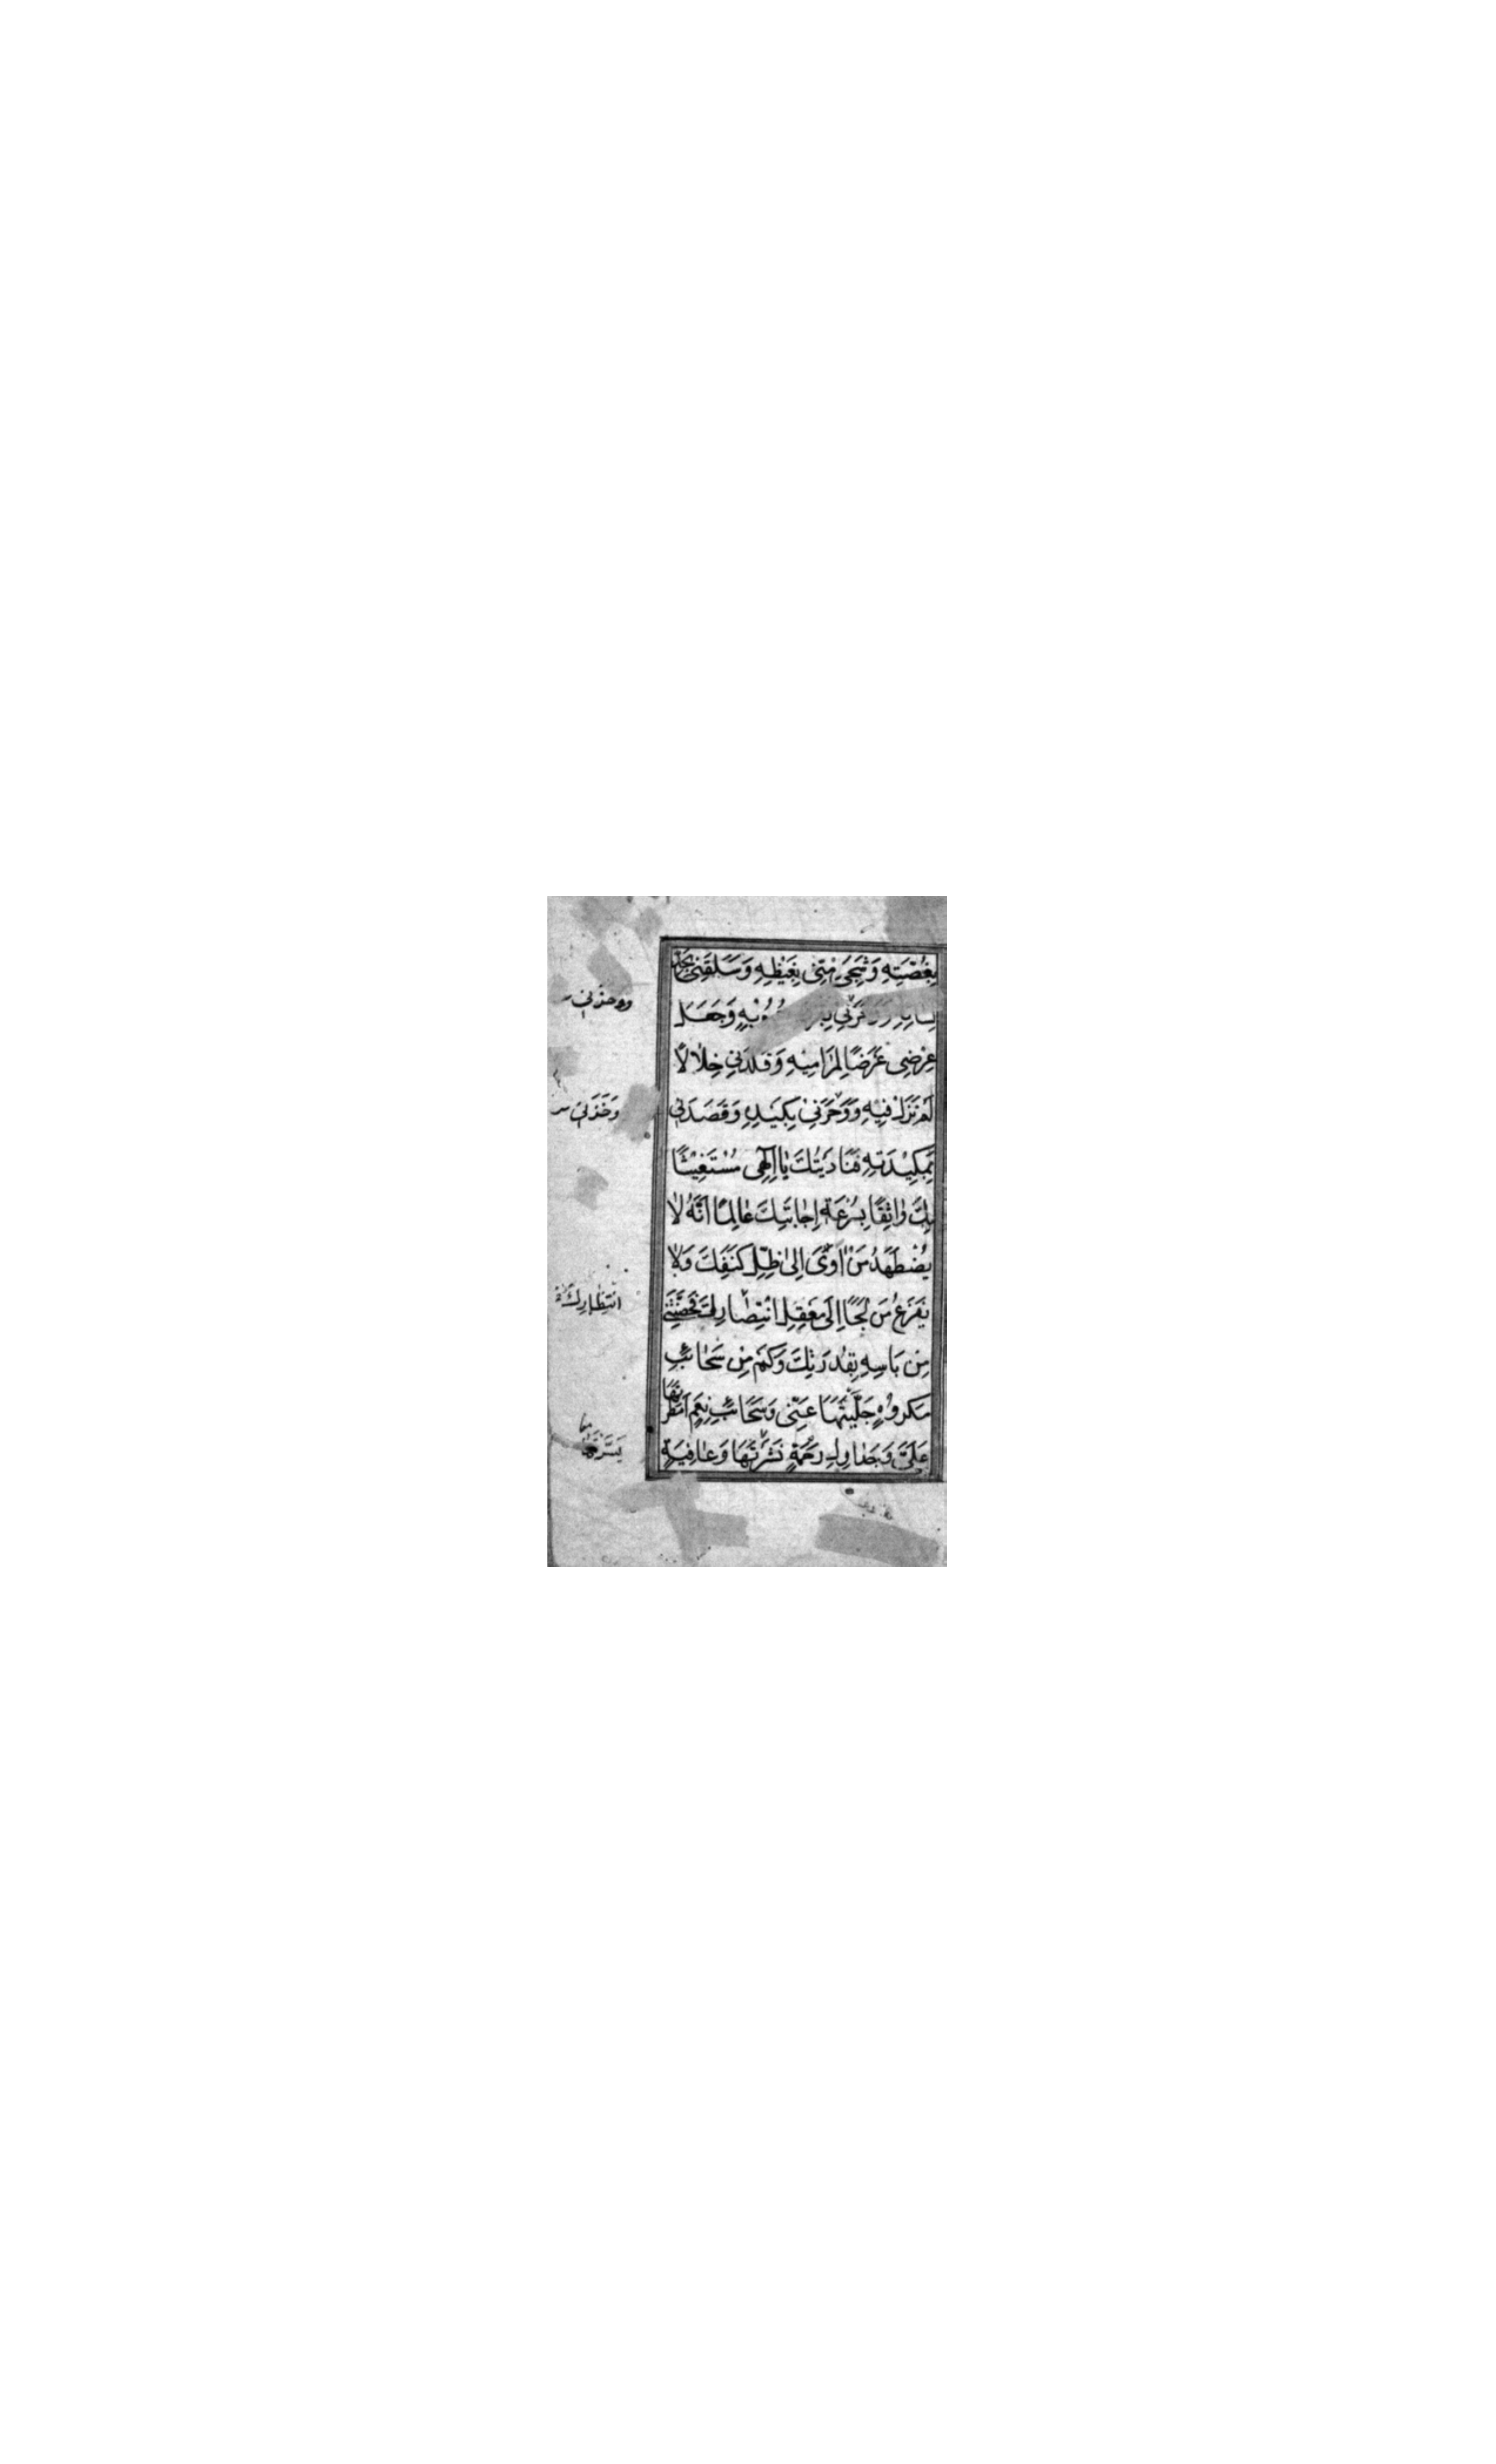 بِغُصَّتِهِ وَشَجِيَ مِنّى بِغَيْظِهِ وَسَلَقَنى بِحَدِّ
لِسَانِهِ وَوَحَرَنِي وَجَعَلَ
عِرْضِى غَرَضًا لِمَرَامِيهِ وَقَلَّدَنِي خِلَالًا
لَمْ تَزَلْ فِيهِ وَوَحَرَنِي بِكَيْدِهِ وَقَصَدَنِي
بِمَكِيدَتِهِ فَنَادَيْتُكَ يَا إِلَهِى مُسْتَغِيثًا
بِكَ وَاثِقًا بِسُرْعَةِ إِجَابَتِكَ عَالِمًا أَنَّهُ لَا
يُضْطَهَدُ مَنْ أَوَى إِلَى ظِلِّ كَنَفِكَ وَلَا
يَفْزَعُ مَنْ لَجَأَ إِلَى مَعْقِلِ انْتِصَارِكَ فَحَصَّنْتَنِي
مِنْ بَاسِهِ بِقُدْرَتِكَ وَكَمْ مِنْ سَحَائِبِ
مَكْرُوهٍ جَلَّيْتَهَا عَنّى وَسَحَائِبِ نِعَمٍ أَمْطَرْتَهَا
عَلَيَّ وَجَدَاوِلِ رَحْمَةٍ نَشَرْتَهَا وَعَافِيَةٍ
ووخزني
وَخَزَنِي
انتظارك